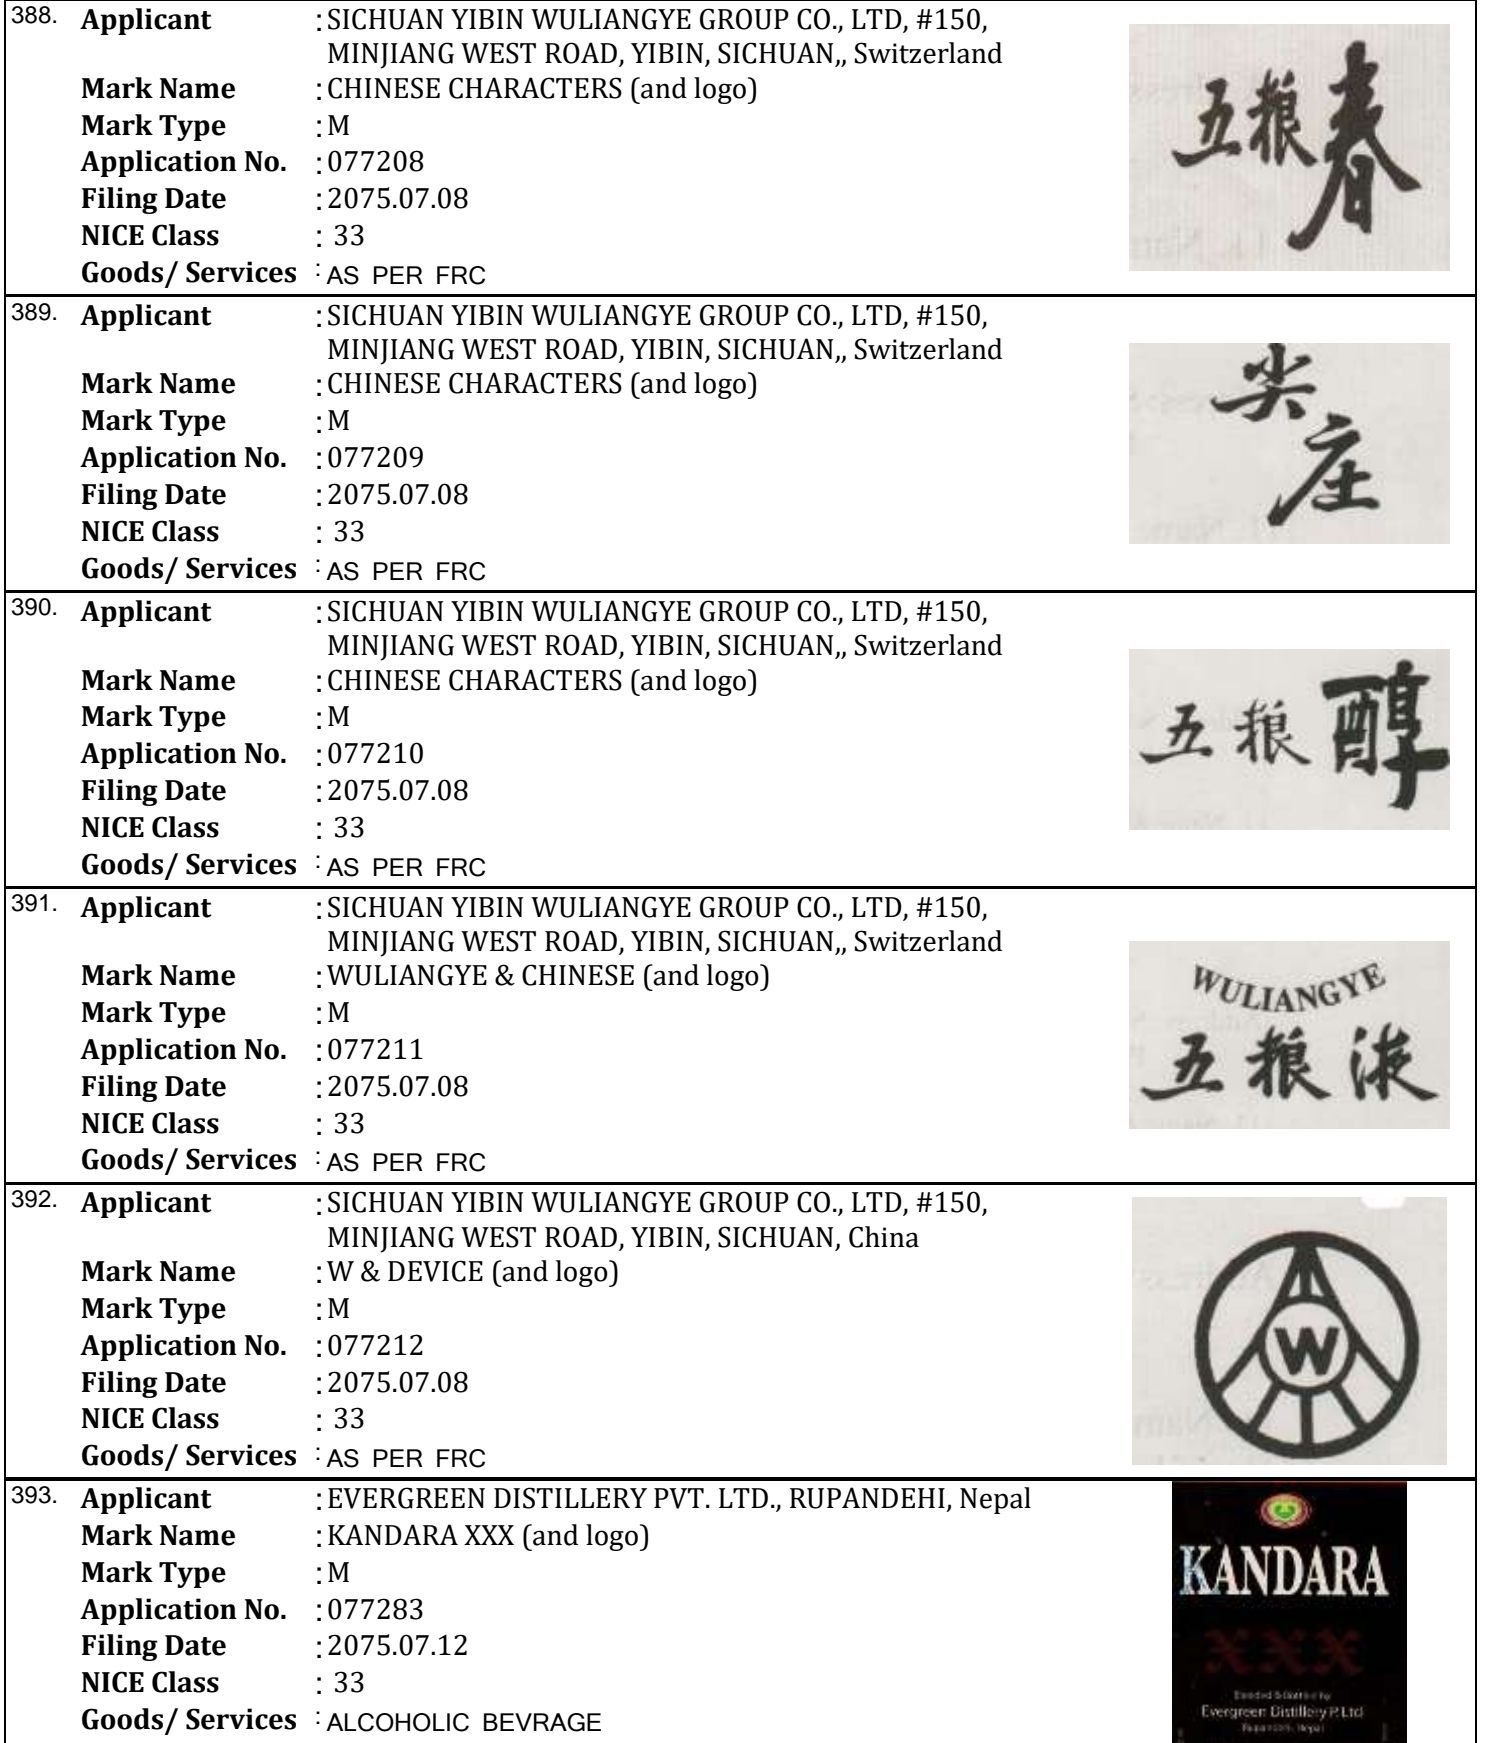 388. Applicant : SICHUAN YIBIN WULIANGYE GROUP CO., LTD, #150,
MINJIANG WEST ROAD, YIBIN, SICHUAN,, Switzerland
Mark Name : CHINESE CHARACTERS (and logo)
Mark Type : M
Application No. : 077208
Filing Date : 2075.07.08
NICE Class : 33
Goods/ Services : AS PER FRC
五粮春
389. Applicant : SICHUAN YIBIN WULIANGYE GROUP CO., LTD, #150,
MINJIANG WEST ROAD, YIBIN, SICHUAN,, Switzerland
Mark Name : CHINESE CHARACTERS (and logo)
Mark Type : M
Application No. : 077209
Filing Date : 2075.07.08
NICE Class : 33
Goods/ Services : AS PER FRC
尖
庄
390. Applicant : SICHUAN YIBIN WULIANGYE GROUP CO., LTD, #150,
MINJIANG WEST ROAD, YIBIN, SICHUAN,, Switzerland
Mark Name : CHINESE CHARACTERS (and logo)
Mark Type : M
Application No. : 077210
Filing Date : 2075.07.08
NICE Class : 33
Goods/ Services : AS PER FRC
五粮醇
391. Applicant : SICHUAN YIBIN WULIANGYE GROUP CO., LTD, #150,
MINJIANG WEST ROAD, YIBIN, SICHUAN,, Switzerland
Mark Name : WULIANGYE & CHINESE (and logo)
Mark Type : M
Application No. : 077211
Filing Date : 2075.07.08
NICE Class : 33
Goods/ Services : AS PER FRC
WULIANGYE
五粮液
392. Applicant : SICHUAN YIBIN WULIANGYE GROUP CO., LTD, #150,
MINJIANG WEST ROAD, YIBIN, SICHUAN, China
Mark Name : W & DEVICE (and logo)
Mark Type : M
Application No. : 077212
Filing Date : 2075.07.08
NICE Class : 33
Goods/ Services : AS PER FRC
W
393. Applicant : EVERGREEN DISTILLERY PVT. LTD., RUPANDEHI, Nepal
Mark Name : KANDARA XXX (and logo)
Mark Type : M
Application No. : 077283
Filing Date : 2075.07.12
NICE Class : 33
Goods/ Services : ALCOHOLIC BEVRAGE
KANDARA
XXX
Blended & Bottled by
Evergreen Distillery P. Ltd
Rupandehi, Nepal